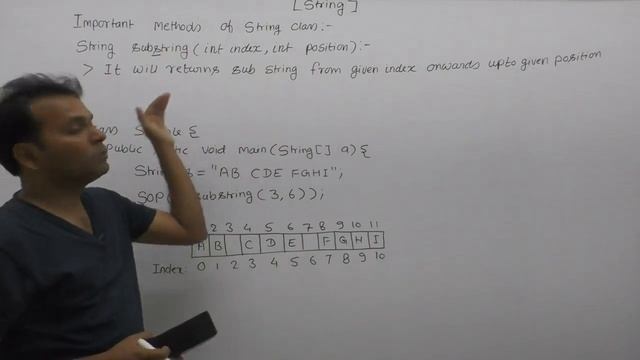 [String]
Important methods of String class:-
String substring(int index, int position):-
> It will returns sub string from given index onwards upto given position
{
public void main(String[] a){
= "AB CDE FGHI";
SOP( substring(3,6));
2 3 4 5 6 7 8 9 10 11
A B C D E F G H I
Index: 0 1 2 3 4 5 6 7 8 9 10